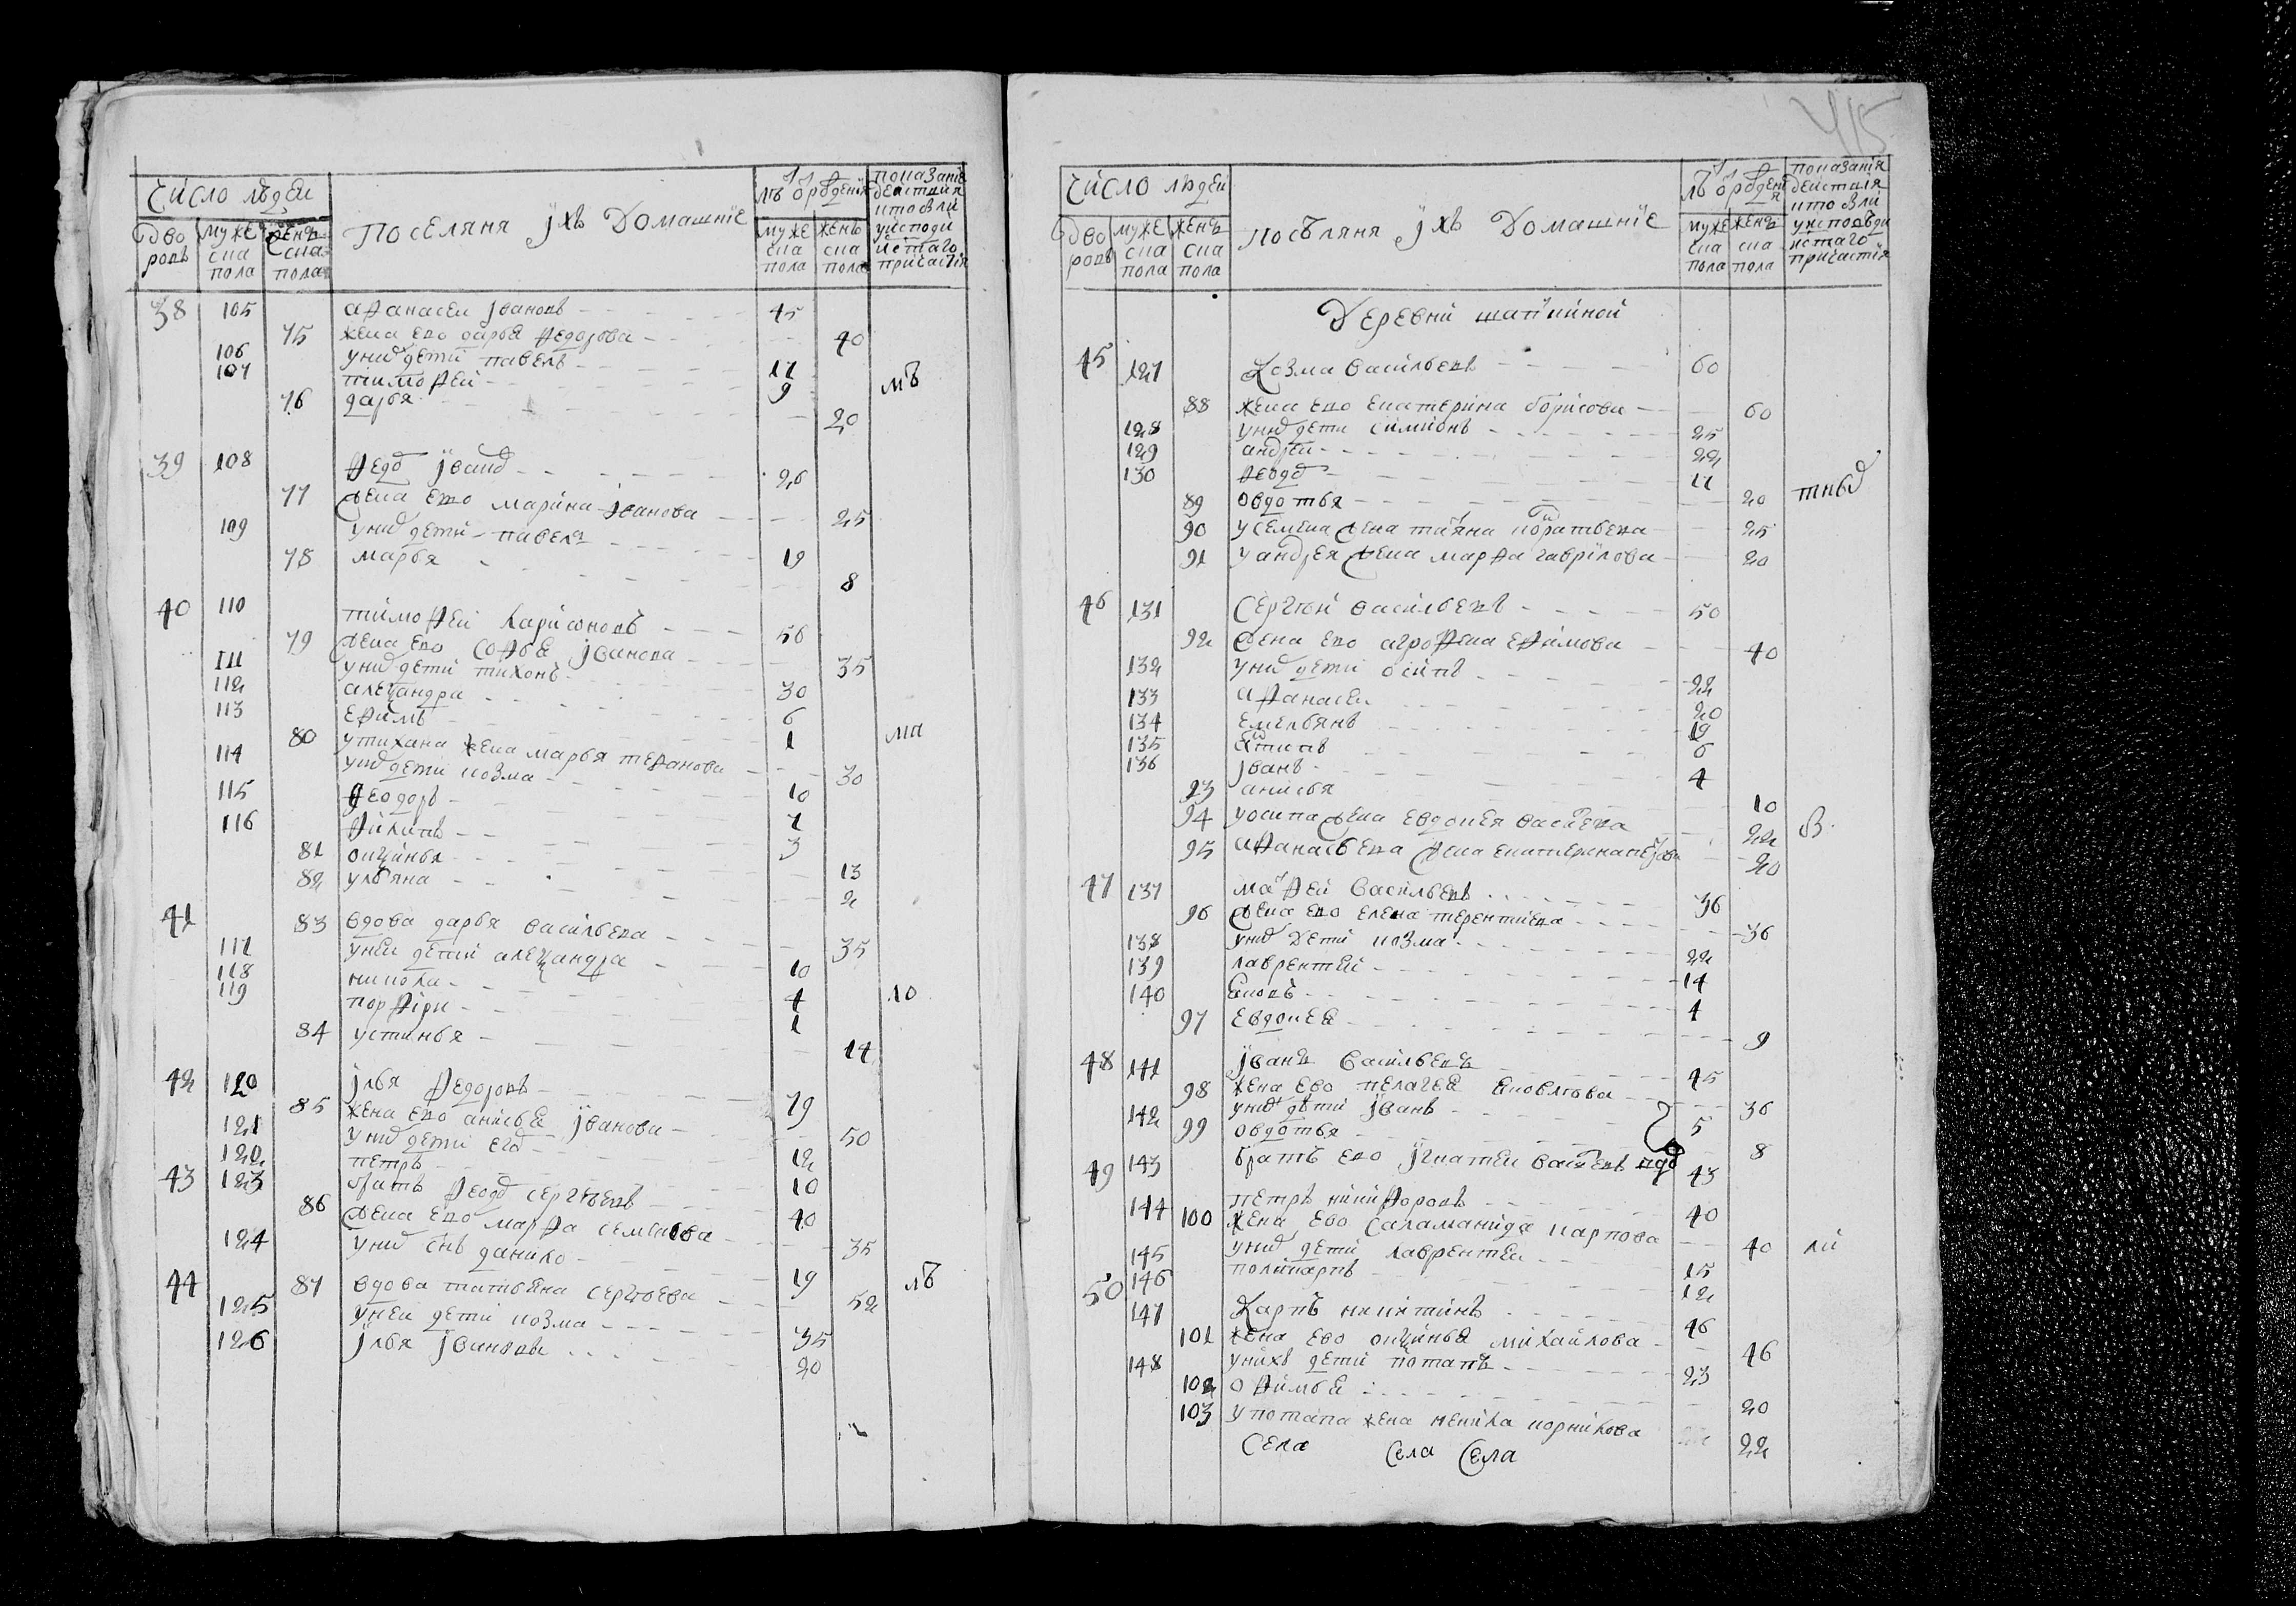 415
число людеи
поселяня ихъ домашние
лѣт от рождения
показание действия кто был у исповеди и с[вя]таго причастия
дво ровъ
муже ска пола
женъ ска пола
муже ска пола
женъ ска пола
38 105 афанасеи Iвановъ 45
75 жена ево дарья федорова 40
106 у них дети павелъ 17
107 тимофей 9
76 дарья 20
39 108 федор Iванов 26
77 жена ево марина Iванова 25
109 у них дети павелъ 19
78 марья 8
40 110 тимофей ларионовъ 56
79 жена ево софья Iванова 35
111 у них дети тихонъ 30
112 алеѯандра 6
113 ефимъ 1
80 у тихана жена марья тефанова 30
114 у них дети козма 10
115 феодоръ 7
116 филипъ 3
81 оксинья 13
82 ульяна 2
41 83 вдова дарья васильева 35
117 у неи дети алеѯандра 10
118 никола 4
119 порфiри 1
84 устинья 14
42 120 Iлья федоровъ 79
85 жена ево анисья Iванова 50
121 у них дети его 12
122 петръ 10
43 123 братъ феодор сергѣевъ 40
86 жена ево марфа семенова 35
124 у них снъ данило 19
44 87 вдова татьяна сергѣева 52
125 у неи дети козма 35
126 Iлья Iвановы 20
число людей
посѣляня ихъ домашние
лѣт от рождения
показания действия кто были у исповѣди и с[вя]таго причастия
дво ровъ
муже ска пола
женъ ска пола
муже ска пола
женъ ска пола
Деревни шапкиной
45 127 Козма васильевъ 60
88 жена ево екатерина борисова 60
128 у них дети симионъ 25
129 андреи 22
130 феодор 17
89 овдотья 20
90 у семена жена татяна кондратьева 25
91 у андрея жена марфа гаврилова 20
46 131 Сергѣй васильевъ 50
92 жена ево агрофена ефимова 40
132 у них дети осипъ 22
133 афанасеи 20
134 емельянъ 19
135 антипъ 6
136 Iванъ 4
93 анисья 10
94 у осипа жена евдокея васильева 22
95 афанасьева жена екатерина петрова 20
47 137 матфей васильевъ 36
96 жена ево елена терентиева 36
138 у них дети козма 22
139 лаврентей 14
140 яковъ 4
97 евдокея 9
48 141 Iванъ васильевъ 45
98 жена ево пелагея яковлѣва 36
142 у них дети Iванъ 5
99 овдотья 8
49 143 братъ ево Iгнатеи васильевъ вдов 43
144 петръ никифоровъ 40
100 жена ево саламанида карпова 40
145 у них дети лаврентеи 15
146 поликарпъ 12
50 147 Карпъ никитинъ 46
101 жена ево оксинья михайлова 46
148 у нихъ дети потапъ 23
102 офимья 20
103 у потапа жена ненила корнилова 22
Села Села Села